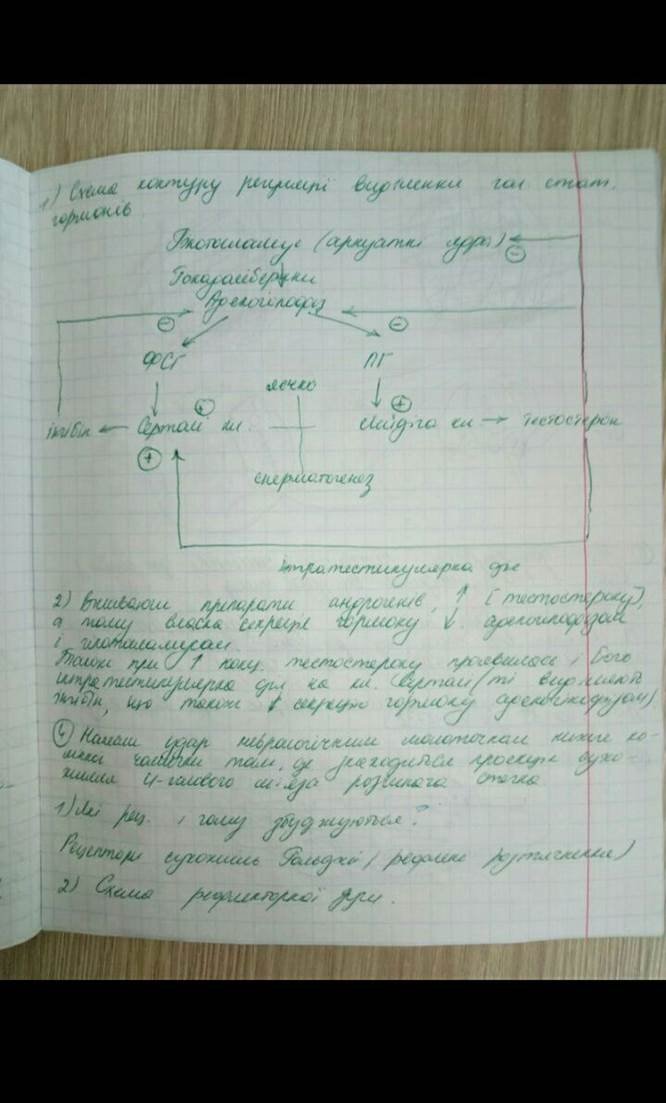 1) Схема контуру регуляції виділення чол. стат.
гормонів
Гіпоталамус (аркуатні ядра)
−
Гонадоліберини
Аденогіпофіз
− −
ФСГ ЛГ
яєчко
+ +
інгібін Сертолі кл. Лейдіга кл → тестостерон
+
сперматогенез
інтратестикулярна дія
2) Вживаючи препарати андрогенів, ↑ [тестостерону],
а тому власна секреція гормону ↓ аденогіпофізом
і гіпоталамусом.
Також при ↑ конц. тестостерону проявилась і його
інтратестикулярна дія на кл. Сертолі (ті виділяють
інгібін, що також ↓ секрецію гормону аденогіпофізом)
4 Нанесли удар неврологічним молоточком нижче ко-
лінної чашечки там, де знаходиться проекція сухо-
жилля 4-голового м'яза розгинача стегна
1) Які рец. і чому збуджуються?
Рецептори сухожиль Гольджі (рефлекс розтягнення)
2) Схема рефлекторної дуги.